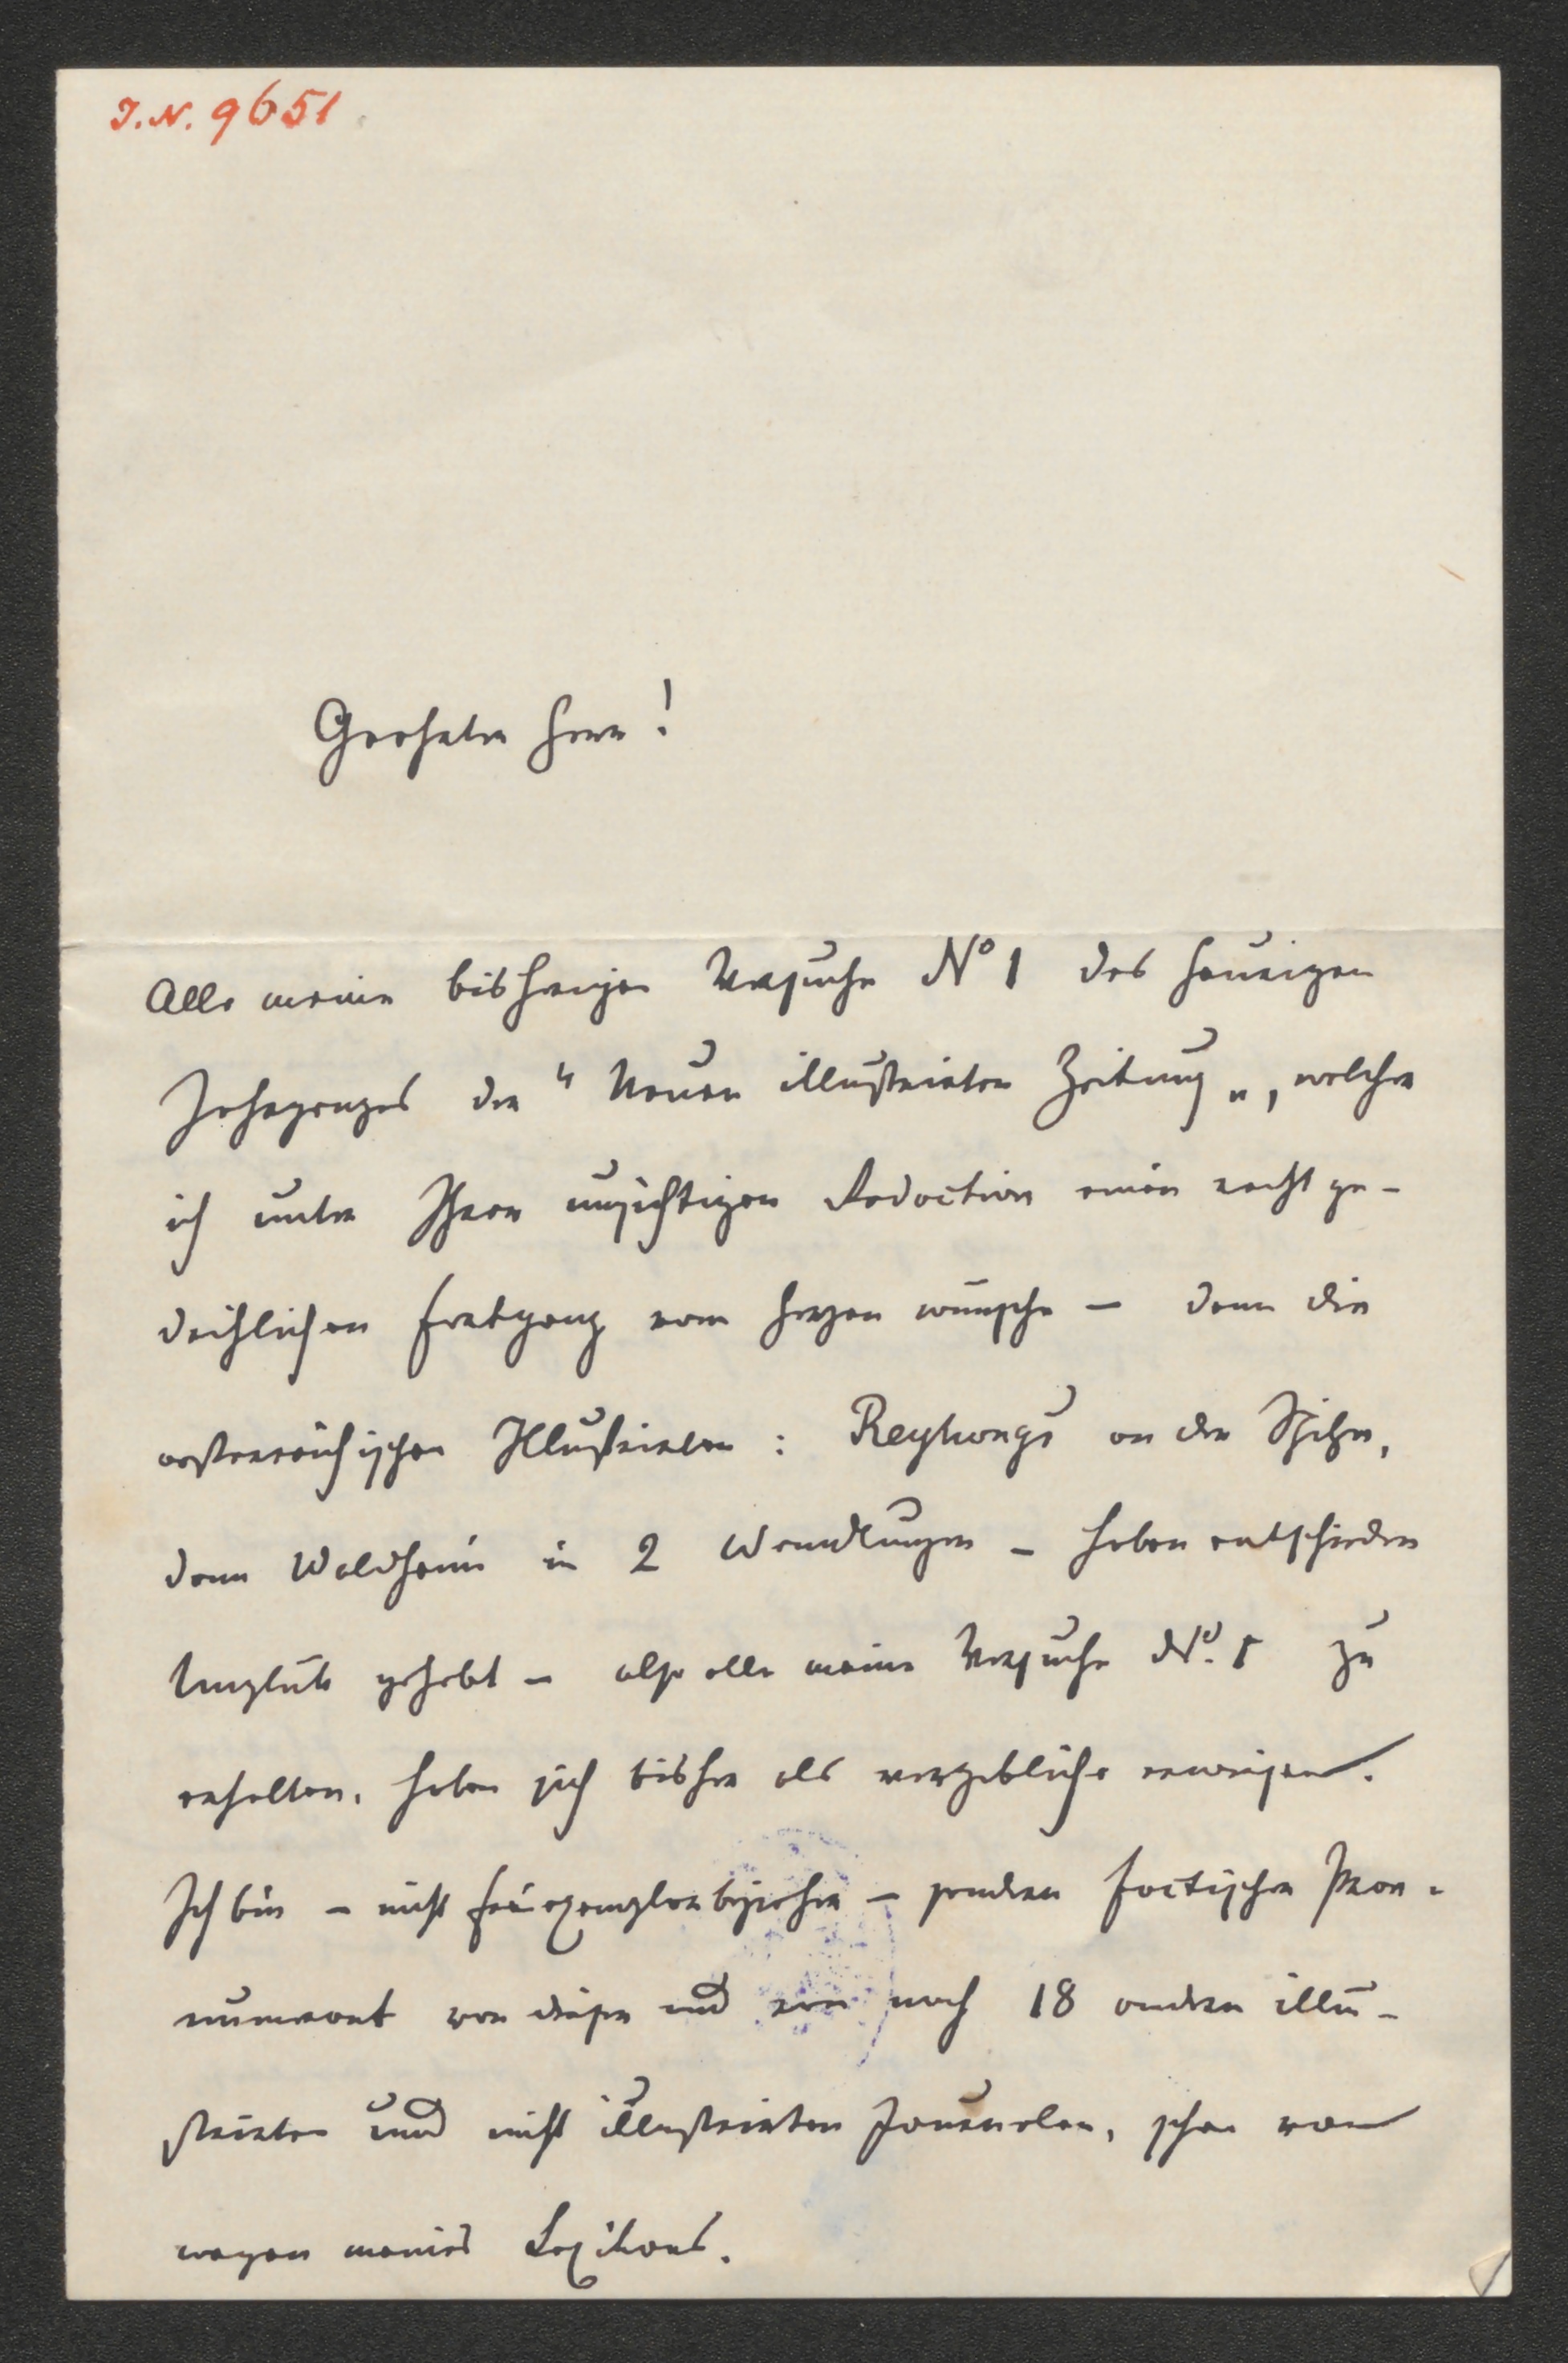 I.N. 9651
Geehrter Herr!
Alle meine bisherigen Versuche No 1 des heurigen
Jahrganges der "Neuen illustrirten Zeitung", welcher
ich unter Ihrer umsichtigen Redaction einen recht ge-
deihlichen Fortgang vom Herzen wünsche – denn die
oesterreichischen Illustrirten: an der Spitze,
dann Waldheim in 2 Wandlungen – haben entschieden
Unglück gehabt – also alle meine Versuche No. 1 zu
erhalten, haben sich bisher als vergebliche erwiesen.
Ich bin – nicht Freiexemplarbezieher – sondern factischer Prae-
numerant von dieser und von noch 18 andern illu-
strirten und nicht illustrirten Journalen, schon von
wegen meines Lexikons.